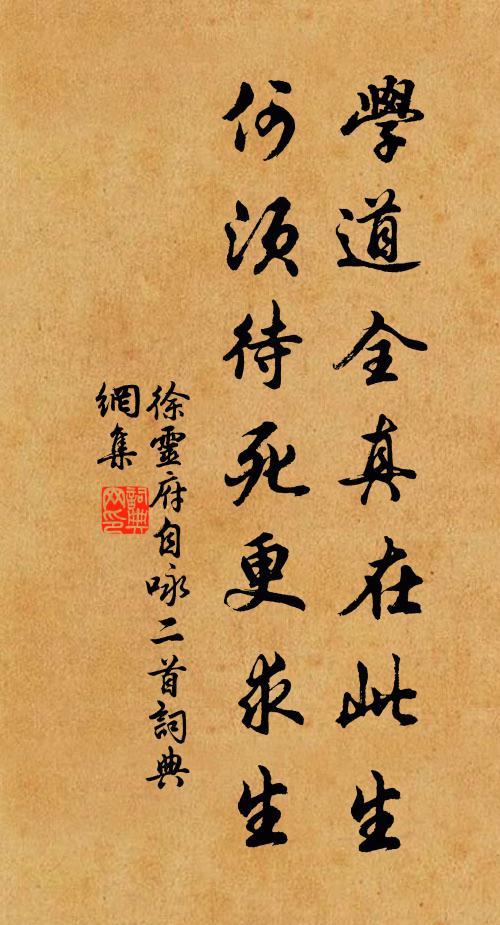 學道全真在此生
何須待死更求生
徐靈府自咏二首詞典
網集
詞典
网印